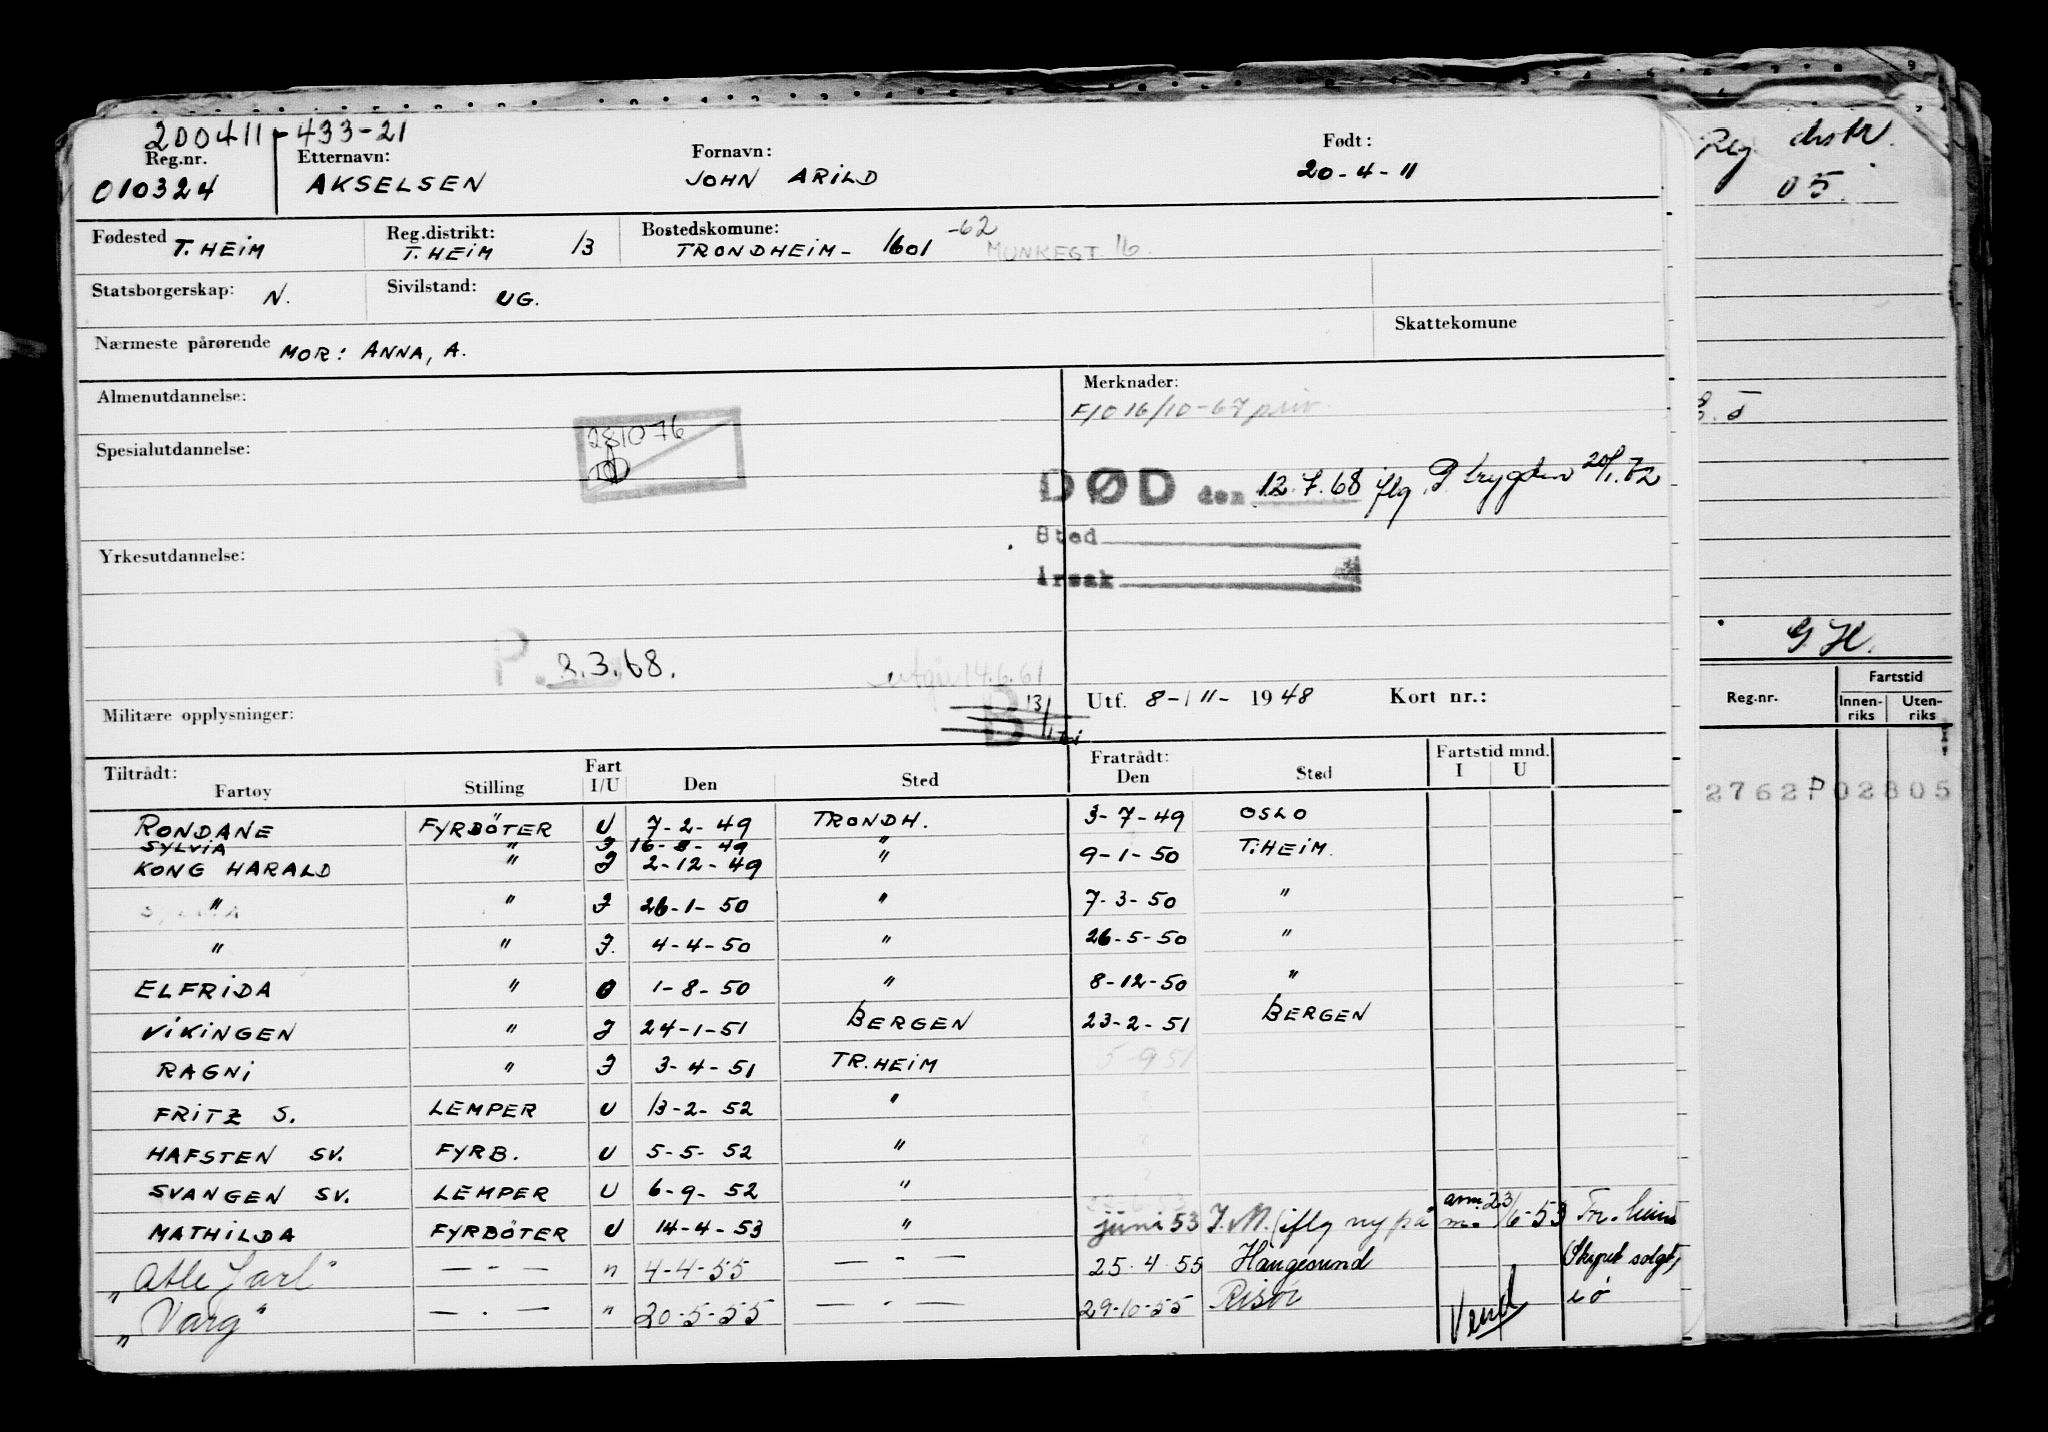 200411-433-21
Reg.nr. Etternavn: Fornavn: Født:
010324 AKSELSEN JOHN ARILD 20-4-11
Fødested T.HEIM Reg.distrikt: T.HEIM 13 Bostedskomune: TRONDHEIM- 1601 -62 MUNKEGT. 16.
Statsborgerskap: N. Sivilstand: UG.
Nærmeste pårørende MOR: ANNA, A. Skattekomune
Almenutdannelse: Merknader:
F/O 16/10-67 priv.
281076
Spesialutdannelse:
DØD den 12.7.68 iflg. P. trygden 20/1.72
Sted
Årsak
Yrkesutdannelse:
P. 8.3.68.
utgår 14.6.61
B 13/1
Militære opplysninger: Utf. 8-11-1948 Kort nr.:
Tiltrådt: Fart Fratrådt: Fartstid mnd.
Fartøy Stilling I/U Den Sted Den Sted I U
RONDANE FYRBÖTER U 7-2-49 TRONDH. 3-7-49 OSLO
SYLVIA " I 16-8-49 "
KONG HARALD " I 2-12-49 " 9-1-50 T.HEIM.
" " I 26-1-50 " 7-3-50 "
" " I. 4-4-50 " 26-5-50 "
ELFRIDA " 1-8-50 " 8-12-50 "
VIKINGEN " I 24-1-51 BERGEN 23-2-51 BERGEN
RAGNI " I 3-4-51 TR.HEIM 5-9 51
FRITZ S. LEMPER U 13-2-52 "
HAFSTEN SV. FYRB. U 5-5-52 "
SVANGEN SV. LEMPER U 6-9-52 "
MATHILDA FYRBÖTER U 14-4-53 " juni 53 I.M. (iflg ny på anm. m. 23/6-53 Tr.heim
"Atle Jarl" — " — " 4-4-55 — " — 25.4.55 Haugesund (Skipet solgt)
"Varg" — " — " 20-5-55 — " — 29-10-55 Risør
Vend
Reg. distr.
05.
G H.
Reg.nr. Fartstid
Innenriks Utenriks
2762P02805